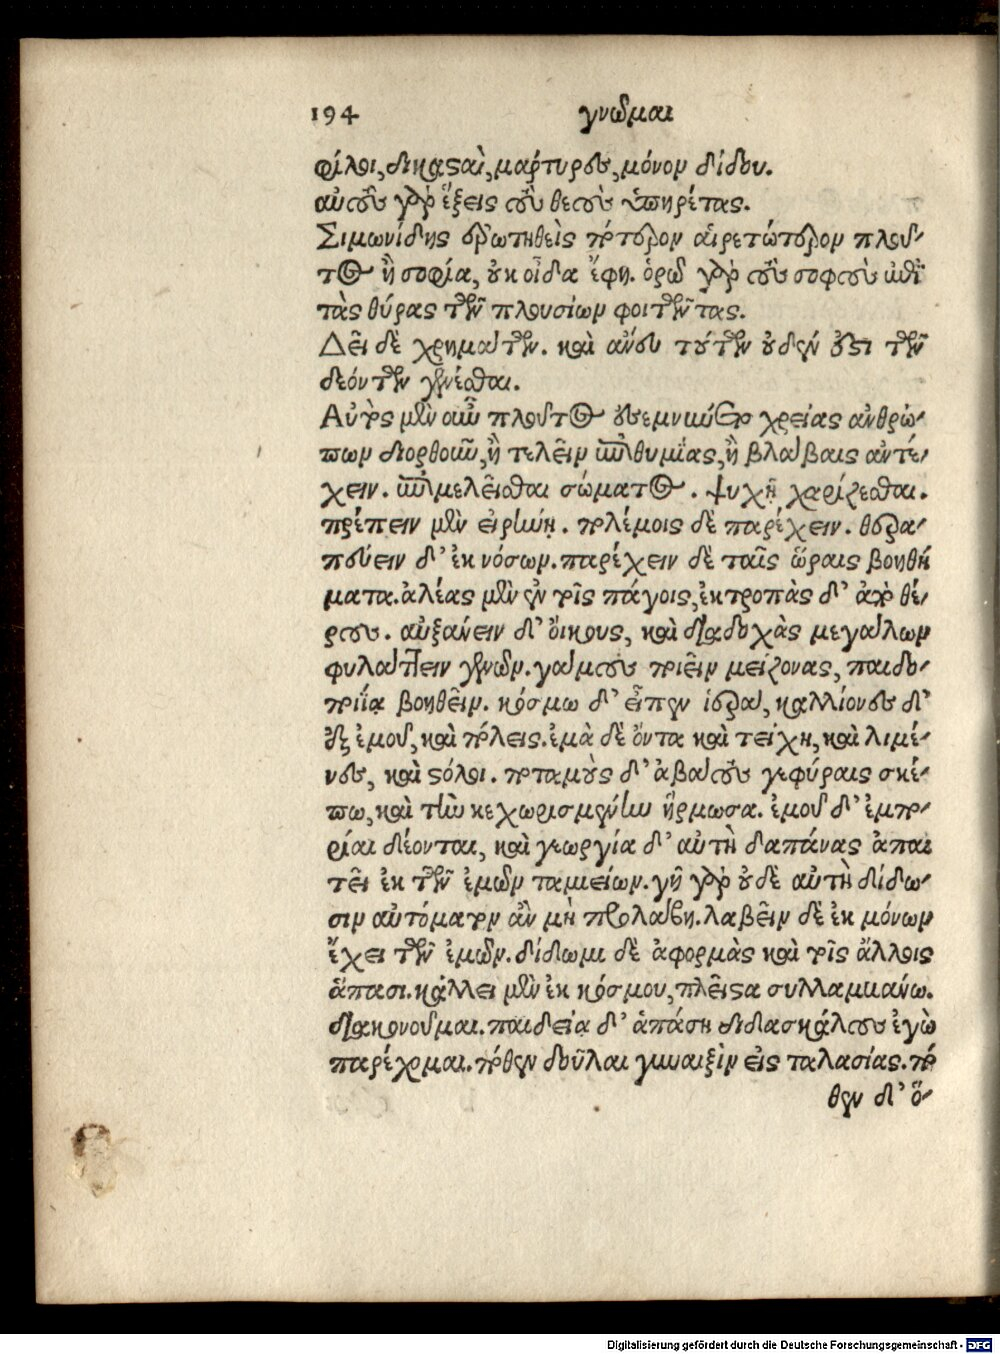 194 γνῶμαι
φίλοι, δικασταὶ, μάρτυρες, μόνον δίδου.
αὐτοὺς γὰρ ἕξεις τοὺς θεοὺς ὑπηρέτας.
Σιμωνίδης ἐρωτηθεὶς πότερον αἱρετώτερον πλοῦ-
τος ἢ σοφία, οὐκ οἶδα ἔφη. ὁρῶ γὰρ τοὺς σοφοὺς ἐπὶ
τὰς θύρας τῶν πλουσίων φοιτῶντας.
Δεῖ δὲ χρημάτων. καὶ ἄνευ τούτων οὐδὲν ἔστι τῶν
δεόντων γενέσθαι.
Αὐτὸς μὲν οὖν πλοῦτος χρείας ἀνθρώ-
πων διορθοῦν, ἢ τελεῖν ἐπιθυμίας, ἢ βλάβαις ἀντέ-
χειν. ἐπιμελεῖσθαι σώματος. ψυχῇ χαρίζεσθαι.
πρέπειν μὲν εἰρήνῃ. πολέμοις δὲ παρέχειν. θερα-
πεύειν δ' ἐκ νόσων. παρέχειν δὲ ταῖς ὥραις βοηθή
ματα. ἀλέας μὲν ἐν τοῖς πάγοις, ἐκτροπὰς δ' ἀπὸ θέ-
ρους. αὐξάνειν δ' οἴκους, καὶ διαδοχὰς μεγάλων
φυλάττειν γενῶν. γάμους ποιεῖν μείζονας, παιδο-
ποιΐᾳ βοηθεῖν. κόσμω δ' εἶπεν ἱερὰ, καλλίονες δ'
ἐξ ἐμοῦ, καὶ πόλεις. ἐμὰ δὲ ὄντα καὶ τείχη, καὶ λιμέ-
νες, καὶ στόλοι. ποταμοὺς δ' ἀβάτους γεφύραις σκέ-
πω, καὶ τὴν κεχωρισμένην ἥρμωσα. ἐμοῦ δ' ἐμπο-
ρίαι δέονται, καὶ γεωργία δ' αὐτὴ δαπάνας ἀπαι
τεῖ ἐκ τῶν ἐμῶν ταμιείων. γῆ γὰρ οὐδὲ αὐτὴ δίδω-
σιν αὐτόματον ἂν μὴ προλάβῃ. λαβεῖν δὲ ἐκ μόνων
ἔχει τῶν ἐμῶν. δίδωμι δὲ ἀφορμὰς καὶ τοῖς ἄλλοις
ἅπασι. κάλλει μὲν ἐκ κόσμου, πλεῖστα συλλαμβάνω.
διακονοῦμαι. παιδείᾳ δ' ἁπάσῃ διδασκάλους ἐγὼ
παρέχομαι. πόθεν δοῦλαι γυναιξὶν εἰς ταλασίας. πό
θεν δ' ὅ-
Digitalisierung gefördert durch die Deutsche Forschungsgemeinschaft - DFG